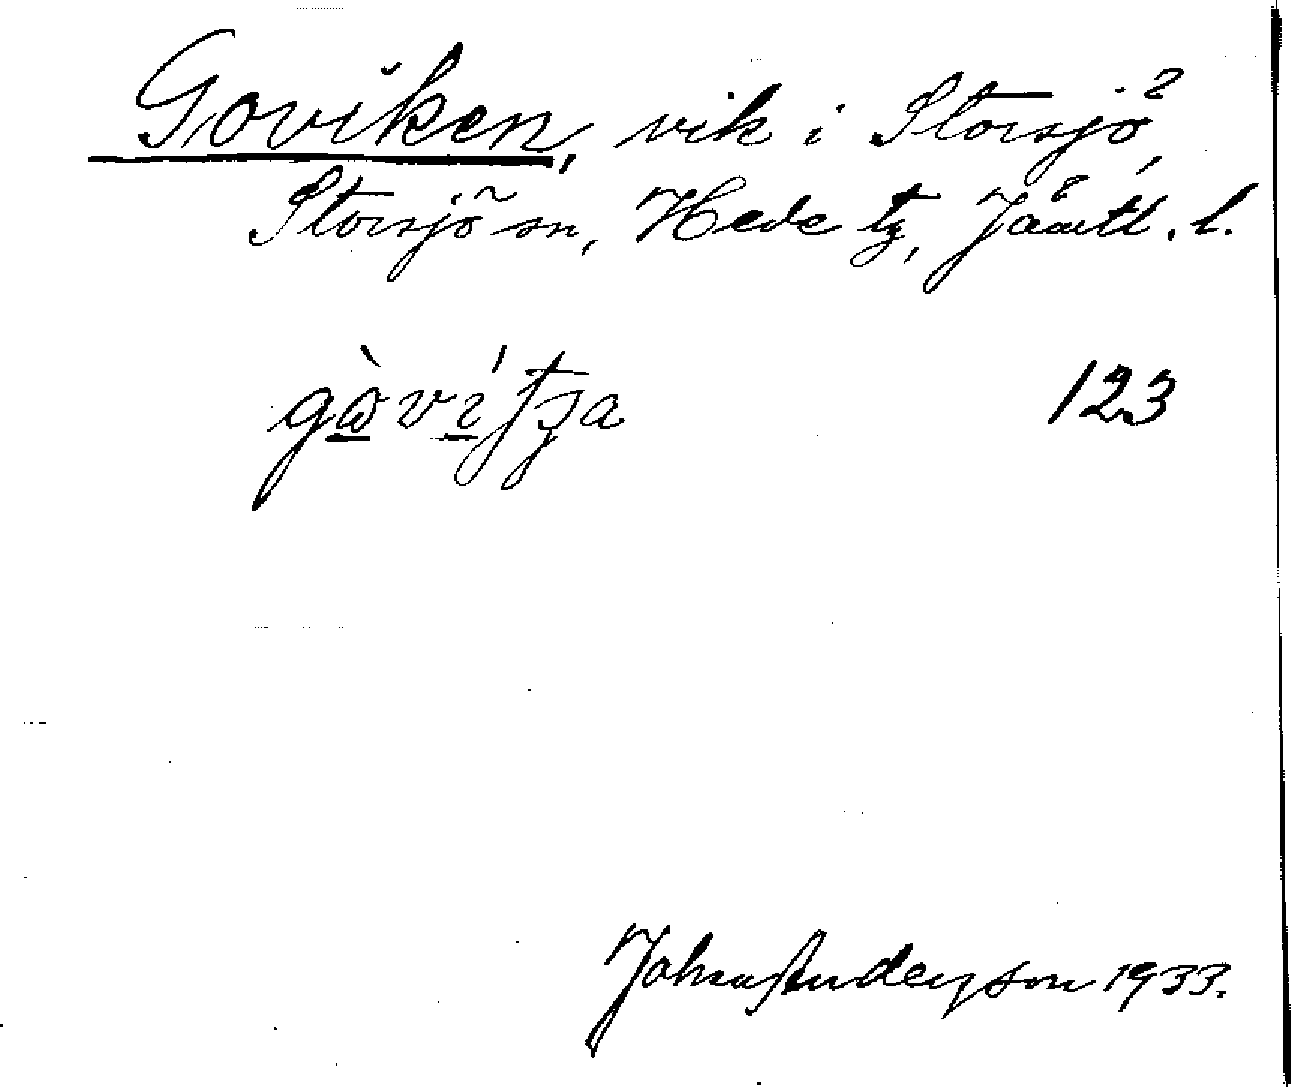 Goviken, vik i Storsjö,
Storsjö sn, Hede tg, Jämtl. l.
123
Johan Anderson 1933.